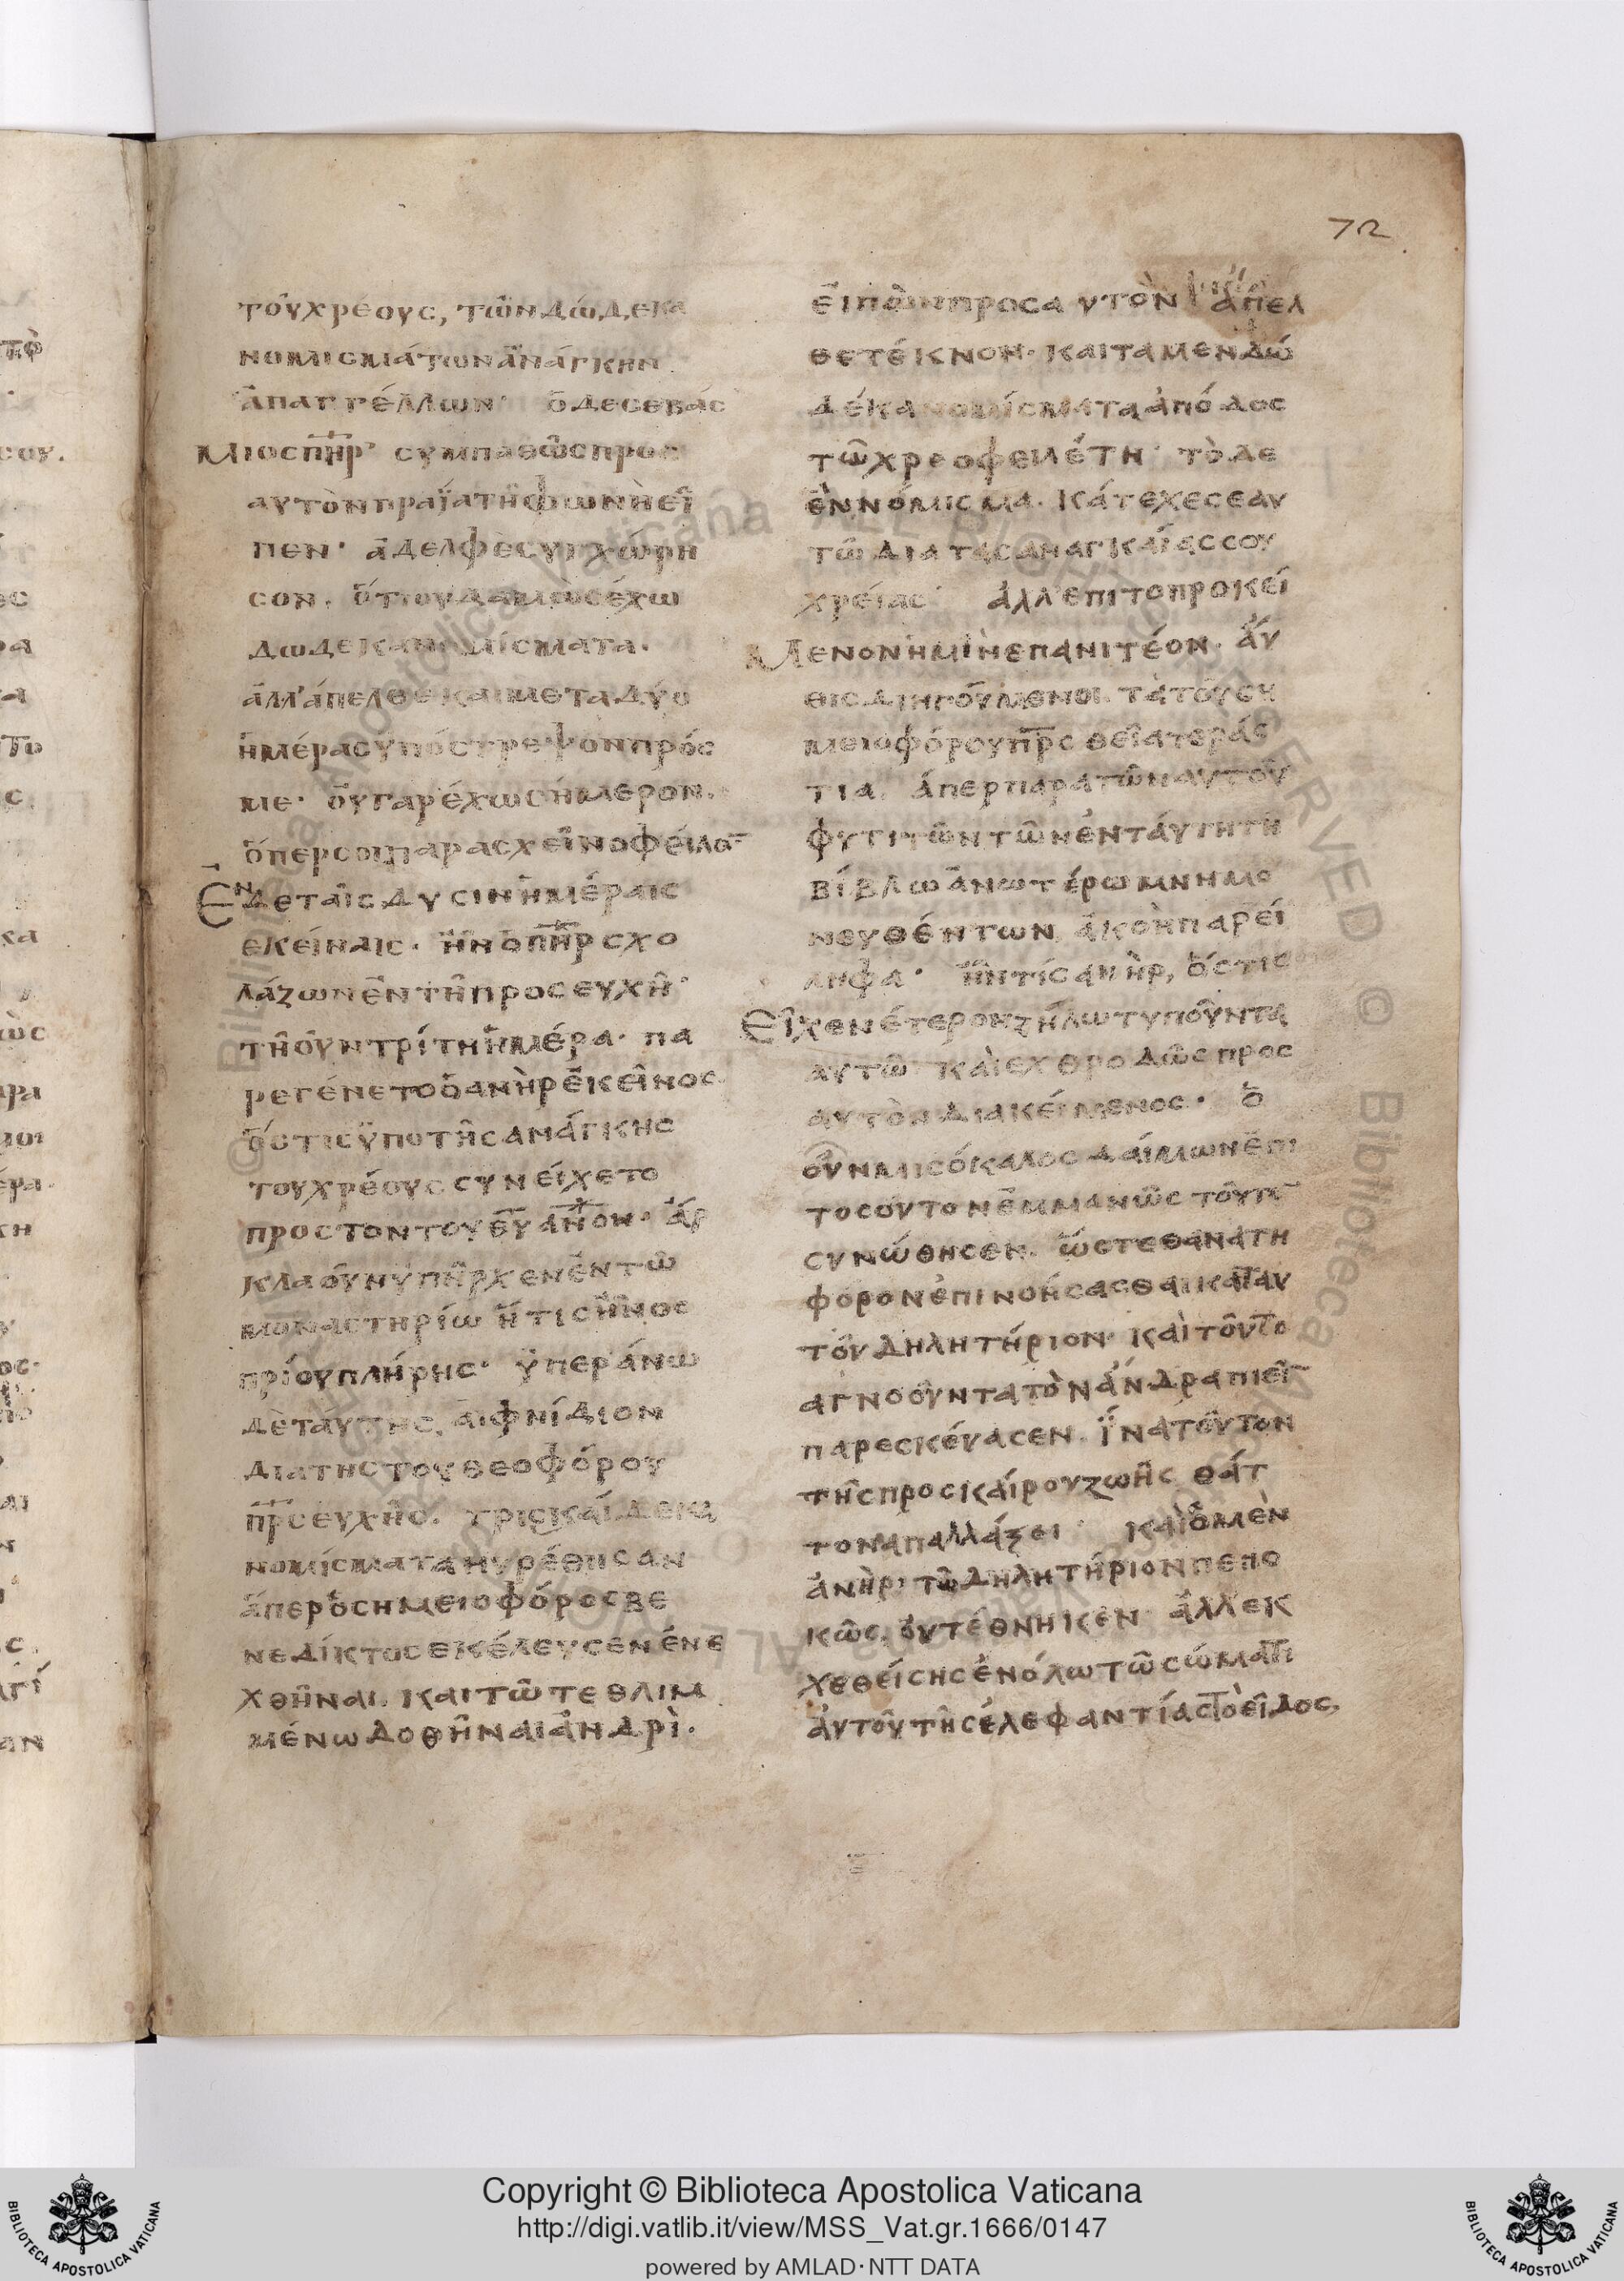 72
τοῦ χρέους, τῶν δώδεκα
νομισμάτων ἀνάγκην
ἀπαγγέλλων· ὁ δὲ σεβάς
μιος πηρ· συμπαθῶς πρὸς
αυτὸν πραΐα τῇ φωνῇ εἶ
πεν· ἀδελφὲ συγχώρη
σον. ὅτι οὐδαμῶς ἔχω
δωδεκα νομίσματα.
ἀλλ' ἄπελθε καὶ μετα δύο
ἡμέρας ὑπόστρεψον πρός
με· οὐ γαρ ἔχω σήμερον.
ὅπερ σοι παρασχεῖν οφείλω
Ἐν δε ταῖς δυσιν ἡμέραις
εκείναις. ἦν ὁ πηρ σχο
λάζων ἐν τῇ προσευχῇ·
τῇ οῦν τρίτῃ ἡμέρα· πα
ρεγένετο ὁ ανὴρ ἐκεῖνος
ὅστις ὑπο τῆς ανάγκης
του χρέους συνείχετο
προς τον του θυ ἀνον· ἄρ
κλα οῦν ὑπῆρχεν ἐν τῶ
μοναστηρίω ἥτις ἦν ὀς
πρίου πλήρης· ὑπεράνω
δὲ ταύτης, αἰφνίδιον
δια της του θεοφόρου
πρς ευχῆς. τρισκαίδεκα
νομίσματα ηυρέθησαν
ἅπερ ὁ σημειοφόρος βε
νεδίκτος εκέλευσεν ἐνε
χθῆναι. και τῶ τεθλιμ
μένω δοθῆναι ἀνδρὶ.
εἰπὼν προς αυτὸν ἄπελ
θε τέκνον. και τα μεν δώ
δέκα νομίσματα ἀπόδος
τῶ χρεοφειλέτη· τὸ δε
ἐν νόμισμα. κάτεχε σεαυ
τῶ δια τας αναγκαίας σου
χρείας· ἀλλ' επι το προκεί
Μενον ἡμῖν επανιτέον. ἄυ
θις διηγούμενοι. τα τοῦ ση
μειοφόρου πρς θεῖα τεράς
τια. ἅπερ παρα τῶν αυτοῦ
φυτιτῶν τῶν ἐν τάυτη τῆ
βίβλω ἀνωτέρω μνημο
νευθέντων, ἀκοῆ παρεί
ληφα· ἦν τίς ανὴρ, ὅστις
Εῖχεν έτερον ζήλω τυποῦντα
αυτῶ· καὶ εχθρωδῶς προς
αυτὸν διακείμενος· ὁ
οὖν μισόκαλος δαίμων ἐπι
τοσούτον ἐμμανῶς τοῦτ
συνώθησεν. ὥστε θανατη
φόρον ἐπινοήσασθαι κατ αυ
τοῦ δηλητήριον· καὶ τοῦτο
αγνοοῦντα τὸν ἄνδρα πιεῖν
παρεσκέυασεν. ἵνα τοῦτον
τῆς προσκαίρου ζωῆς θάτ
τον απαλλάξει· καὶ ὁ μὲν
ἀνὴρ· τῶ δηλητήριον πεπο
κῶς, ὀυ τέθνηκεν· ἀλλ' εκ
χεθείσης ἐν όλω τῶ σώματι
ἀυτοῦ τῆς ἐλεφαντίας τὸ εῖδος,
Copyright © Biblioteca Apostolica Vaticana
http://digi.vatlib.it/view/MSS_Vat.gr.1666/0147
powered by AMLAD·NTT DATA